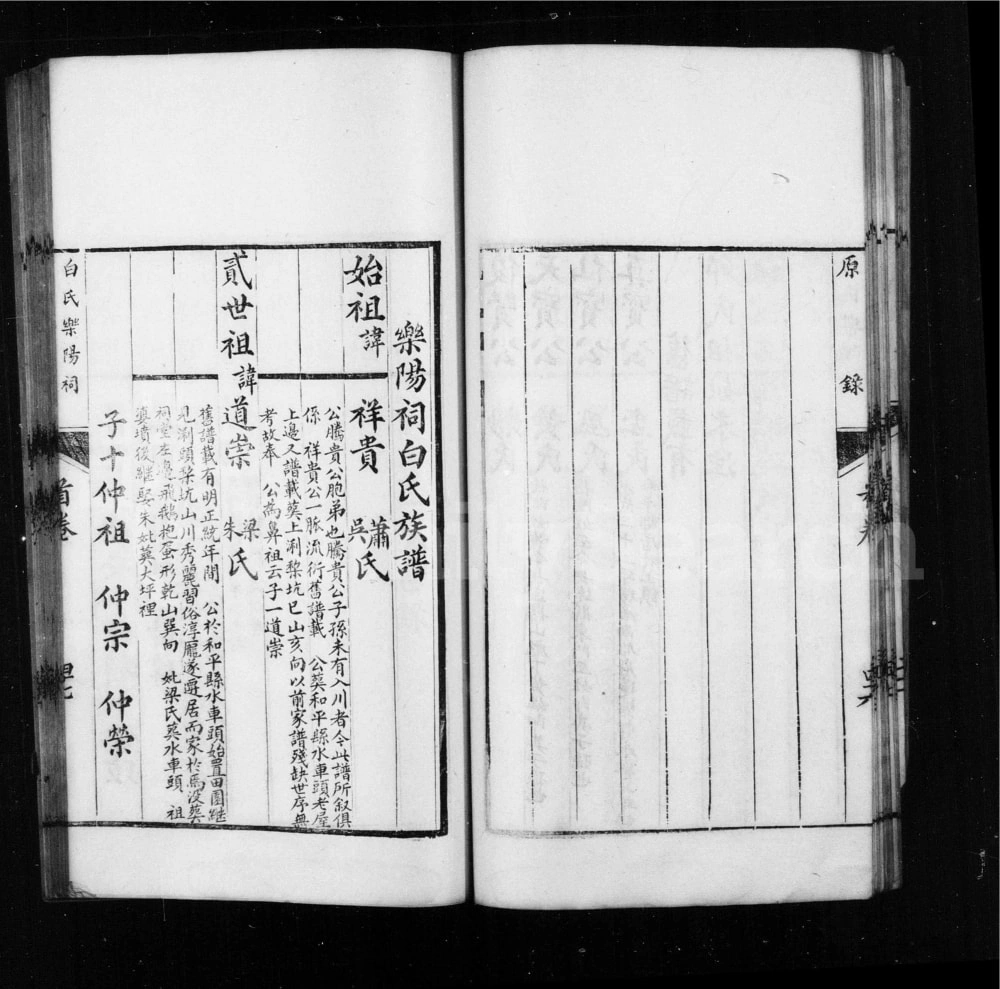 原錄
樂陽祠白氏族譜
始祖諱祥貴 蕭吳氏
公騰貴公胞弟也騰貴公子孫未有入川者今此譜所叙俱
係 祥貴公一脉流衍舊譜載 公葬和平縣水車頭老屋
上邊又譜載葬上涮梨坑巳山亥向以前家譜殘缺世序無
考故奉 公為鼻祖云子一道崇
貳世祖諱道崇 梁朱氏
舊譜載有明正統年間 公於和平縣水車頭始置田園繼
見涮頭梨坑山川秀麗習俗淳龐遂遷居而家於焉沒葬
祠堂左邊飛鵝抱蛋形乾山巽向 妣梁氏葬水車頭 祖
婆墳後繼娶朱妣葬大坪裡
子十仲祖 仲宗 仲榮
白氏樂陽祠
首卷